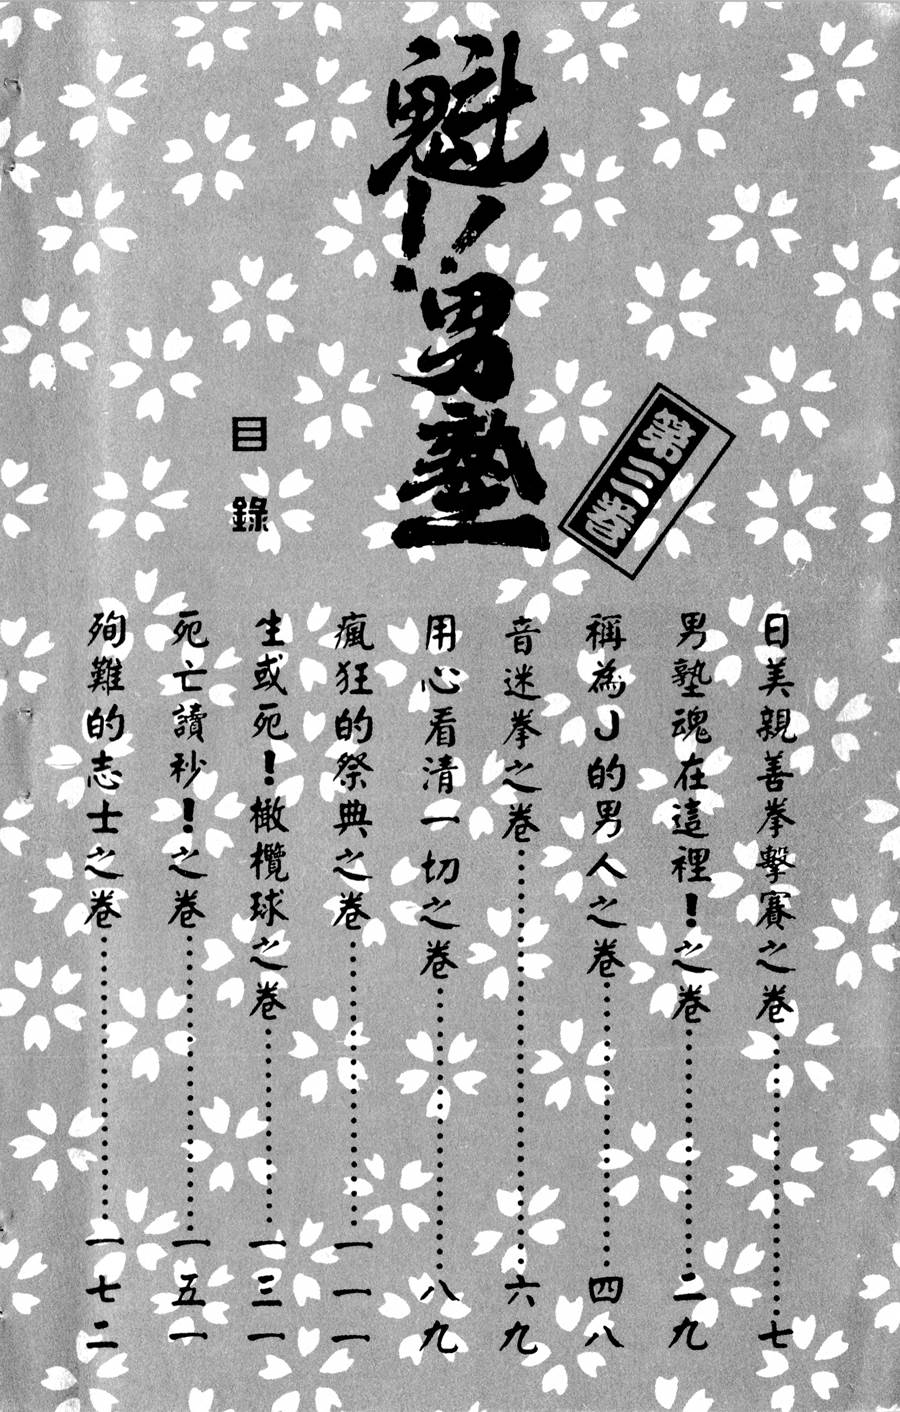 魁!!男塾
第三卷
目錄
日美親善拳擊賽之卷……七
男塾魂在這裡!之卷……二九
稱為J的男人之卷……四八
音迷拳之卷……六九
用心看清一切之卷……八九
瘋狂的祭典之卷……一一一
生或死!橄欖球之卷……一三一
死亡讀秒!之卷……一五一
殉難的志士之卷……一七二